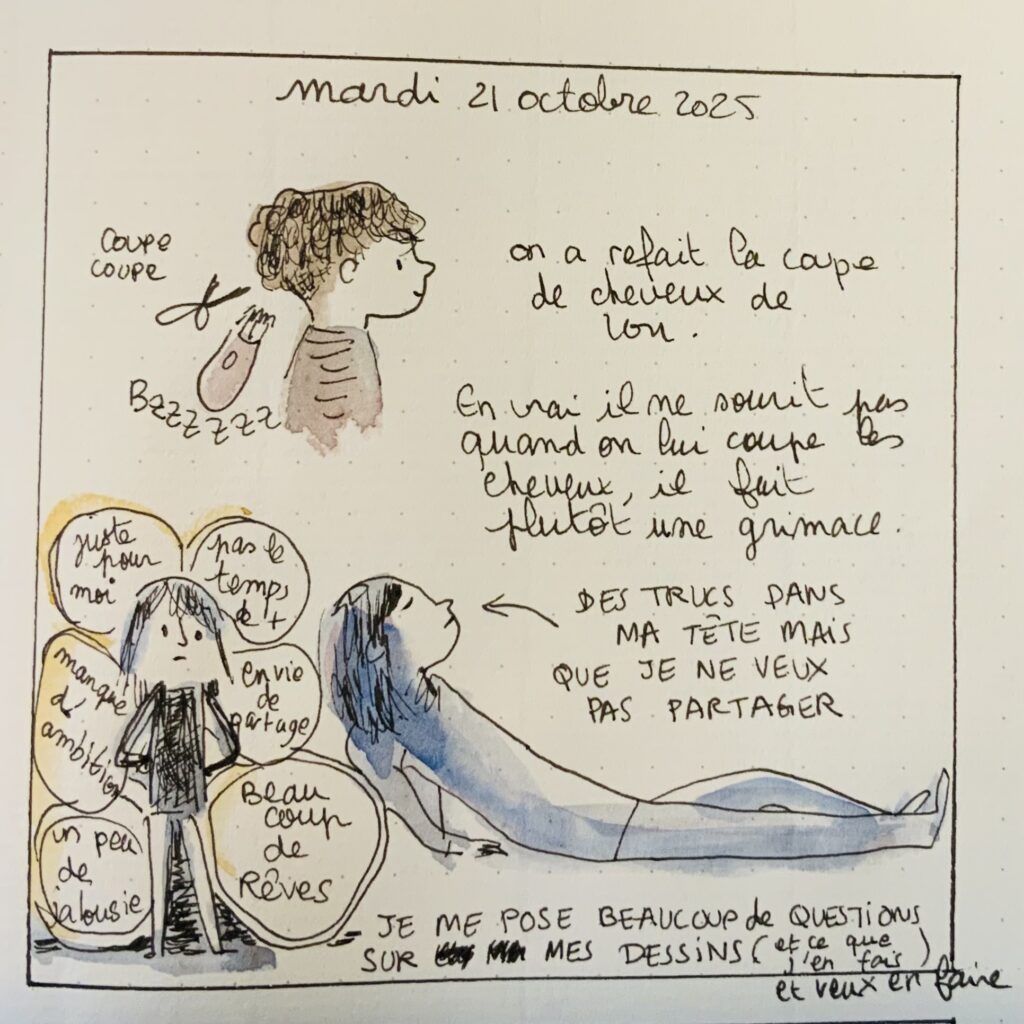 mardi 21 octobre 2025
COUPE
COUPE
BZZZZZZ
on a refait la coupe
de cheveux de
Lou.
En vrai il ne sourit pas
quand on lui coupe les
cheveux, il fait
plutôt une grimace.
juste
pour
moi
pas le
temps
de +
manque
d'
ambition
envie
de
partage
un peu
de
jalousie
BEAU
coup
de
RÊVES
DES TRUCS DANS
MA TÊTE MAIS
QUE JE NE VEUX
PAS PARTAGER
JE ME POSE BEAUCOUP de QUESTIONS
SUR MES DESSINS (et ce que
j'en fais)
et veux en faire